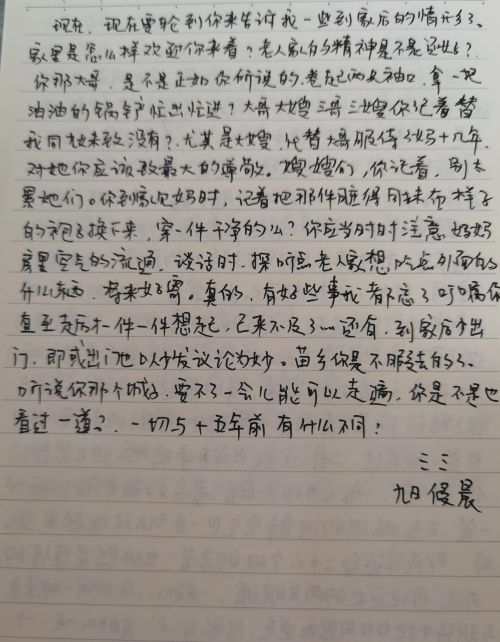 现在,现在要轮到你来告诉我一些到家后的情形了。
家里是怎么样欢迎你来着?老人家的精神是不是还好?
你那大哥,是不是正如你所说的,卷起两支袖口,拿一把
油油的锅铲忙出忙进?大哥大嫂三哥三嫂你记着替
我同九妹致没有?尤其是大嫂,代替大哥服侍了妈十几年,
对她你应该致最大的尊敬。嫂嫂们,你记着,别太
累她们。你到家见妈时,记着把那件脏得同抹布样子
的袍子换下来,穿一件干净的么?你应当时时注意妈妈
房里空气的流通,谈话时,探听点老人家想吃点外面的
什么东西,将来好寄。真的,有好些事我都忘了叮嘱你
直至走后才一件一件想起,已来不及了……还有,到家后少出
门,即或出门也以少发议论为妙。苗乡你是不暇去的了。
听说你那个城子,要不了一会儿能可以走遍,你是不是也
看过一道?一切与十五年前有什么不同?
三三
九日侵晨